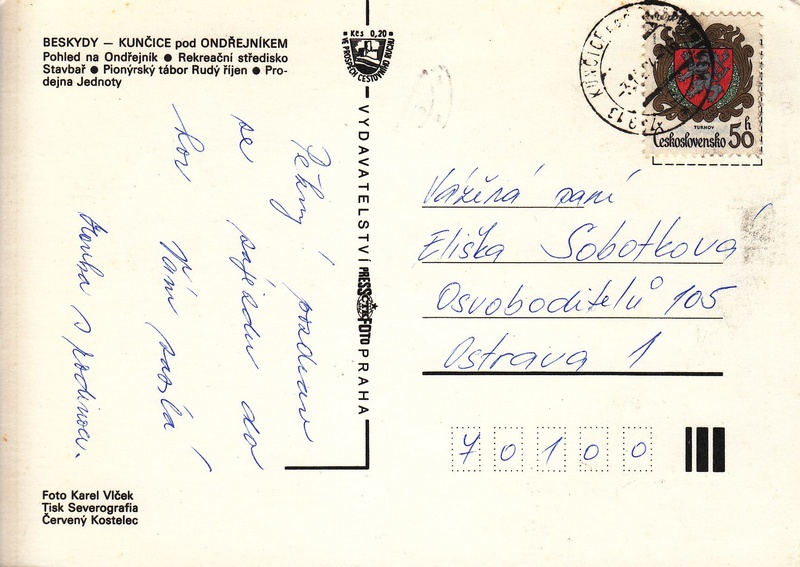 BESKYDY — KUNČICE pod ONDŘEJNÍKEM
Pohled na Ondřejník ● Rekreační středisko
Stavbař ● Pionýrský tábor Rudý říjen ● Pro-
dejna Jednoty
Pěkný pozdrav
se zájezdu do
hor Vám zasílá
s rodinou.
Foto Karel Vlček
Tisk Severografia
Červený Kostelec
Kčs 0,20
VE PROSPĚCH CESTOVNÍHO RUCHU
VYDAVATELSTVÍ PRESSFOTO PRAHA
KUNČICE POD
739 13
TURNOV
Československo 50 h
Vážená paní
Eliška Sobotková
Osvoboditelů 105
Ostrava 1
70100